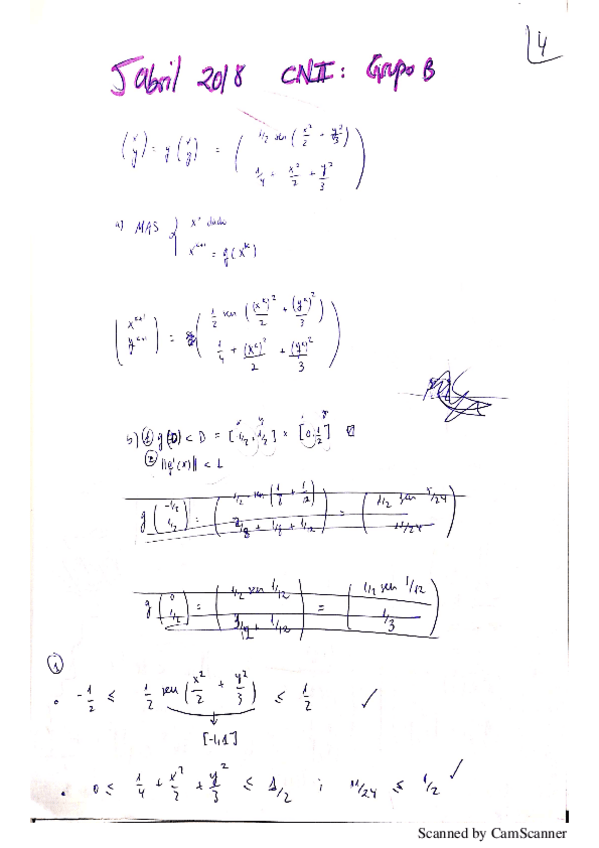 4
5 abril 2018 CNII: Grupo B
(x y) = g (x y) = ( 1/2 sen (x²/2 + y²/3) 1/4 + x²/2 + y²/3 )
a) MAS { x⁰ dado
x^(k+1) = g(x^k)
(x^(k+1) y^(k+1)) = ( 1/2 sen ((x^k)²/2 + (y^k)²/3) 1/4 + (x^k)²/2 + (y^k)²/3 )
b) ① g(D) < D = [-1/2, 1/2] × [0, 1/2]
② ||g'(x)|| < 1
g (-1/2 1/2) = = ( 1/2 sen 5/24 11/24 )
g (0 1/2) = ( 1/2 sen 1/12 + 1/12 ) = ( 1/2 sen 1/12 1/3 )
①
• -1/2 ≤ 1/2 sen (x²/2 + y²/3) ≤ 1/2 ✓
[-1,1]
• 0 ≤ 1/4 + x²/2 + y²/3 ≤ 1/2 ; 11/24 ≤ 1/2 ✓
Scanned by CamScanner